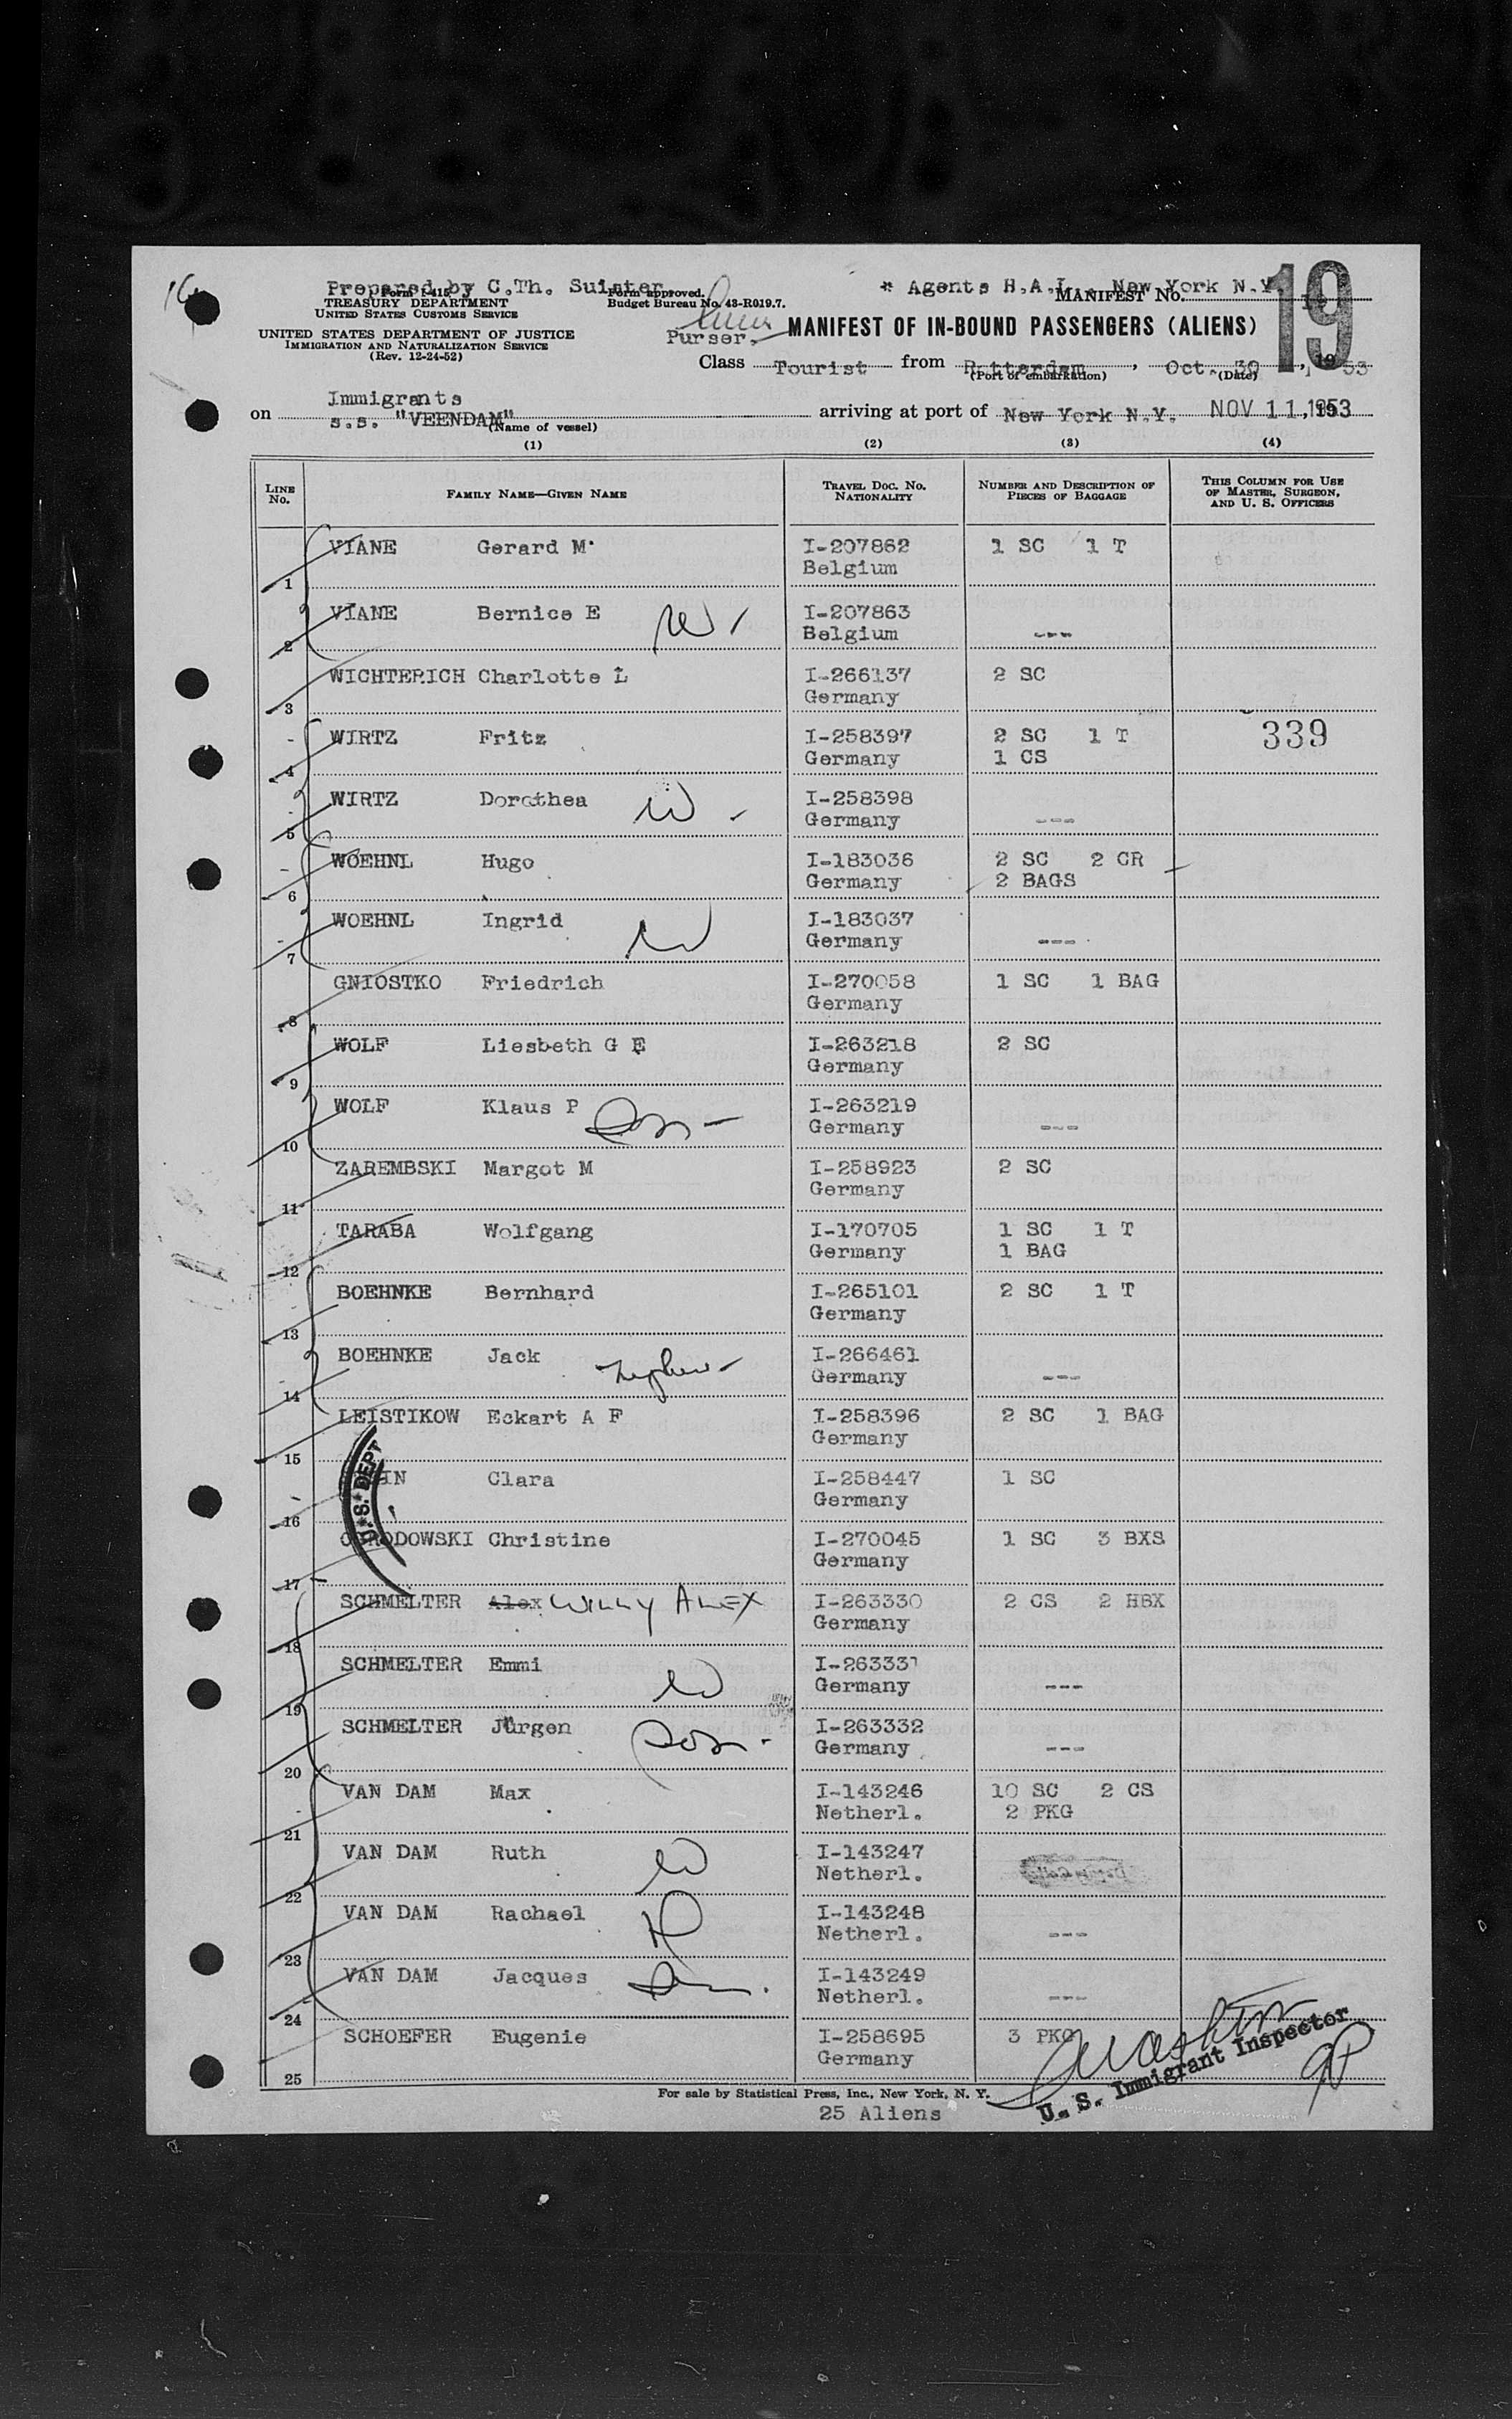 Prepared by C.Th. Suister * Agents H.A.L. New York N.Y.
Form I-415 Form approved. MANIFEST No. 19
TREASURY DEPARTMENT Budget Bureau No. 43-R019.7.
UNITED STATES CUSTOMS SERVICE
UNITED STATES DEPARTMENT OF JUSTICE Purser. MANIFEST OF IN-BOUND PASSENGERS (ALIENS)
IMMIGRATION AND NATURALIZATION SERVICE
(Rev. 12-24-52)
Class Tourist from Rotterdam, Oct. 30, 1953
(Port of embarkation) (Date)
Immigrants
on s.s. "VEENDAM" arriving at port of New York N.Y. NOV 11, 1953
(Name of vessel)
(1) (2) (3) (4)
LINE No. FAMILY NAME—GIVEN NAME TRAVEL DOC. NO. NATIONALITY NUMBER AND DESCRIPTION OF PIECES OF BAGGAGE THIS COLUMN FOR USE OF MASTER, SURGEON, AND U. S. OFFICERS
VIANE Gerard M I-207862 1 SC 1 T
1 Belgium
VIANE Bernice E W I-207863
2 Belgium ---
WICHTERICH Charlotte L I-266137 2 SC
3 Germany
WIRTZ Fritz I-258397 2 SC 1 T 339
4 Germany 1 CS
WIRTZ Dorothea W I-258398
5 Germany ---
WOEHNL Hugo I-183036 2 SC 2 CR
6 Germany 2 BAGS
WOEHNL Ingrid W I-183037
7 Germany ---
GNIOSTKO Friedrich I-270058 1 SC 1 BAG
8 Germany
WOLF Liesbeth G E I-263218 2 SC
9 Germany
WOLF Klaus P Son I-263219
10 Germany ---
ZAREMBSKI Margot M I-258923 2 SC
11 Germany
TARABA Wolfgang I-170705 1 SC 1 T
12 Germany 1 BAG
BOEHNKE Bernhard I-265101 2 SC 1 T
13 Germany
BOEHNKE Jack nephew I-266461
14 Germany ---
LEISTIKOW Eckart A F I-258396 2 SC 1 BAG
15 Germany
U.S. DEPT
Clara I-258447 1 SC
16 Germany
Christine I-270045 1 SC 3 BXS
17 Germany
SCHMELTER Alex WILLY ALEX I-263330 2 CS 2 HBX
18 Germany
SCHMELTER Emmi W I-263331
19 Germany ---
SCHMELTER Jürgen Son I-263332
20 Germany ---
VAN DAM Max I-143246 10 SC 2 CS
21 Netherl. 2 PKG
VAN DAM Ruth W I-143247
22 Netherl.
VAN DAM Rachael D I-143248
23 Netherl. ---
VAN DAM Jacques Son I-143249
24 Netherl. ---
SCHOEFER Eugenie I-258695 3 PKG
25 Germany
U. S. Immigrant Inspector
For sale by Statistical Press, Inc., New York, N. Y.
25 Aliens